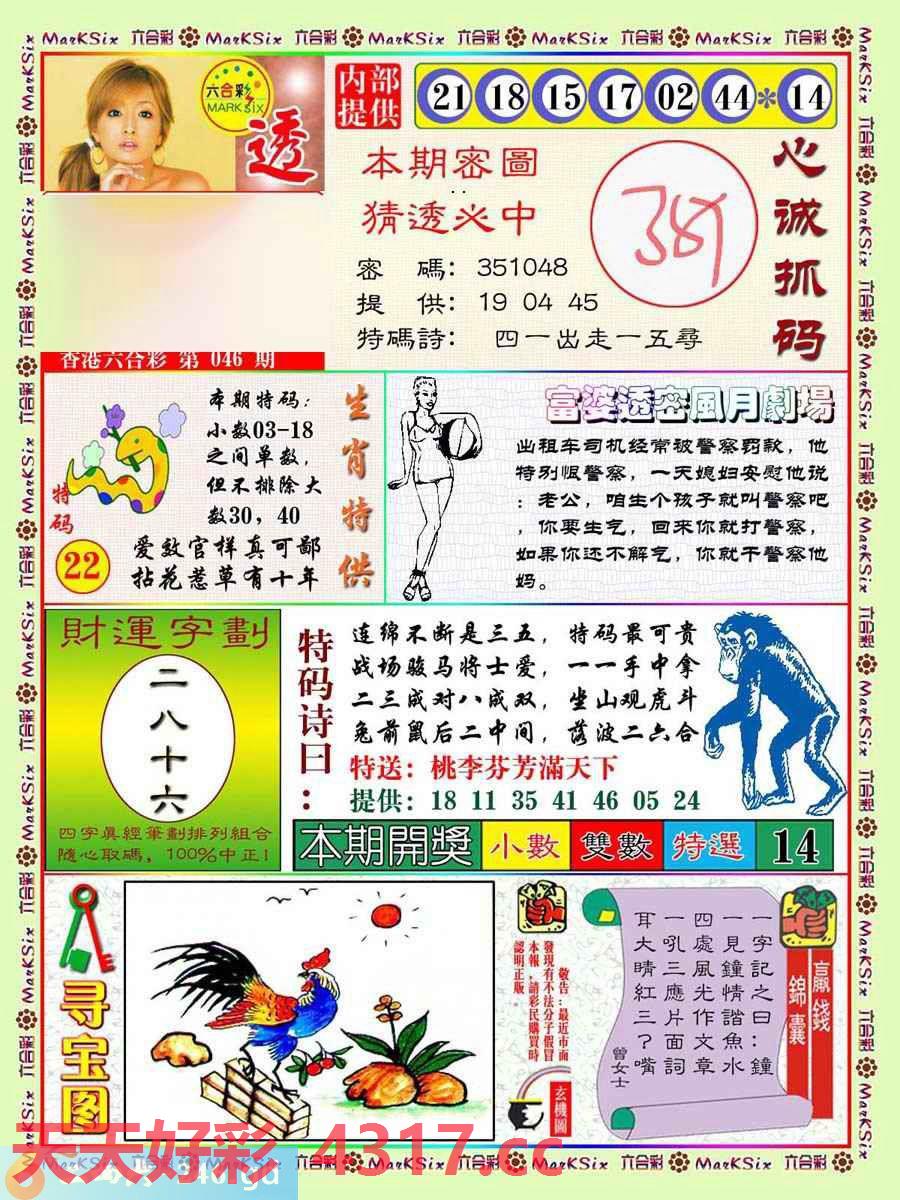 MarKSix 六合彩 MarKSix 六合彩 MarKSix 六合彩 MarKSix 六合彩 MarKSix 六合彩
六合彩
MARK six
透
内部
提供
21 18 15 17 02 44 * 14
本期密圖
猜透必中
密 碼: 351048
提 供: 19 04 45
特碼詩: 四一出走一五尋
心诚抓码
香港六合彩 第 046 期
本期特码:
小数03-18
之间单数,
但不排除大
数30, 40
特码
22
爱敛官样真可鄙
拈花惹草有十年
生肖特供
富婆透密風月劇場
出租车司机经常被警察罚款, 他
特别恨警察, 一天媳妇安慰他说
: 老公, 咱生个孩子就叫警察吧
, 你要生气, 回来你就打警察,
如果你还不解气, 你就干警察他
妈。
財運字劃
二八十六
四字真經筆劃排列組合
隨心取碼, 100%中正!
特码诗曰:
连绵不断是三五, 特码最可贵
战场骏马将士爱, 一一手中拿
二三成对八成双, 坐山观虎斗
兔前鼠后二中间, 落波二六合
特送: 桃李芬芳滿天下
提供: 18 11 35 41 46 05 24
本期開獎 小數 雙數 特選 14
寻宝图
敬告:最近市面
發現有不法分子假冒
本報,請彩民購買時
認明正版。
玄機圖
一字記之曰:鐘
一見鐘情諧魚水
四處風光作文章
一吼三應片面詞
耳大睛紅三?嘴
曾女士
贏錢
錦囊
天天好彩 4317.cc
MarKSix 六合彩 MarKSix 六合彩 MarKSix 六合彩 MarKSix 六合彩